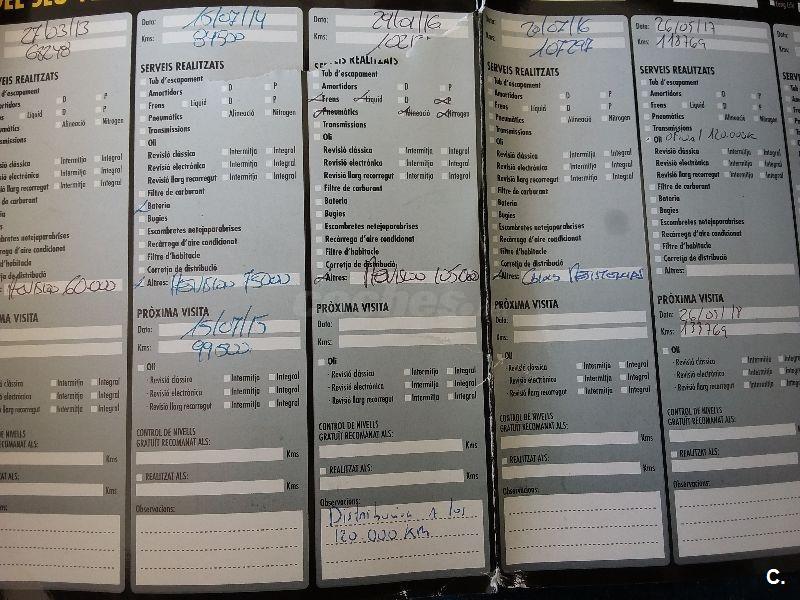 DEL SEU
27/03/13
68248
SERVEIS REALITZATS
Tub d'escapament
Amortidors
Frens Liquid D P
Pneumàtics Alineació Nitrogen
Transmissions
Revisió clàssica Intermitja Integral
Revisió electrònica Intermitja Integral
Revisió llarg recorregut Intermitja Integral
Filtre de carburant
REVISIO 60000
PRÒXIMA VISITA
Revisió clàssica Intermitja Integral
Revisió electrònica Intermitja Integral
Revisió llarg recorregut Intermitja Integral
Kms
Kms
Data: 15/07/14
Kms: 84500
SERVEIS REALITZATS
Tub d'escapament
Amortidors D P
Frens Liquid D P
Pneumàtics Alineació Nitrogen
Transmissions
Oli
Revisió clàssica Intermitja Integral
Revisió electrònica Intermitja Integral
Revisió llarg recorregut Intermitja Integral
Filtre de carburant
Bateria
Bugies
Escombretes netejaparabrises
Recàrrega d'aire condicionat
Filtre d'habitacle
Corretja de distribució
Altres: REVISIO 75000
PRÒXIMA VISITA
Data: 15/07/15
Kms: 99500
Oli
- Revisió clàssica Intermitja Integral
- Revisió electrònica Intermitja Integral
- Revisió llarg recorregut Intermitja Integral
CONTROL DE NIVELLS
GRATUÏT RECOMANAT ALS:
Kms
REALITZAT ALS:
Kms
Observacions:
Data:
Kms:
SERVEIS REALITZATS
Tub d'escapament
Amortidors D P
Frens Liquid D P
Pneumàtics Alineació Nitrogen
Transmissions
Oli
Revisió clàssica Intermitja Integral
Revisió electrònica Intermitja Integral
Revisió llarg recorregut Intermitja Integral
Filtre de carburant
Bateria
Bugies
Escombretes netejaparabrises
Recàrrega d'aire condicionat
Filtre d'habitacle
Corretja de distribució
Altres: REVISIO 105000
PRÒXIMA VISITA
Data:
Kms:
Oli
- Revisió clàssica Intermitja Integral
- Revisió electrònica Intermitja Integral
- Revisió llarg recorregut Intermitja Integral
CONTROL DE NIVELLS
GRATUÏT RECOMANAT ALS:
Kms
REALITZAT ALS:
Kms
Observacions:
Distribucion A los
120.000 KM
Data: 20/07/16
Kms: 107297
SERVEIS REALITZATS
Tub d'escapament
Amortidors D P
Frens Liquid D P
Pneumàtics Alineació Nitrogen
Transmissions
Oli
Revisió clàssica Intermitja Integral
Revisió electrònica Intermitja Integral
Revisió llarg recorregut Intermitja Integral
Filtre de carburant
Bateria
Bugies
Escombretes netejaparabrises
Recàrrega d'aire condicionat
Filtre d'habitacle
Corretja de distribució
Altres:
PRÒXIMA VISITA
Data:
Kms:
Oli
- Revisió clàssica Intermitja Integral
- Revisió electrònica Intermitja Integral
- Revisió llarg recorregut Intermitja Integral
CONTROL DE NIVELLS
GRATUÏT RECOMANAT ALS:
Kms
REALITZAT ALS:
Kms
Observacions:
Data: 26/05/17
Kms: 118769
SERVEIS REALITZATS
Tub d'escapament
Amortidors D P
Frens Liquid D P
Pneumàtics Alineació Nitrogen
Transmissions
Oli 120.000K
Revisió clàssica Intermitja Integral
Revisió electrònica Intermitja Integral
Revisió llarg recorregut Intermitja Integral
Filtre de carburant
Bateria
Bugies
Escombretes netejaparabrises
Recàrrega d'aire condicionat
Filtre d'habitacle
Corretja de distribució
Altres:
PRÒXIMA VISITA
Data: 26/05/18
Kms: 133769
Oli
- Revisió clàssica Intermitja Integral
- Revisió electrònica Intermitja Integral
- Revisió llarg recorregut Intermitja
CONTROL DE NIVELLS
GRATUÏT RECOMANAT ALS:
Kms
REALITZAT ALS:
Kms
Observacions:
C.